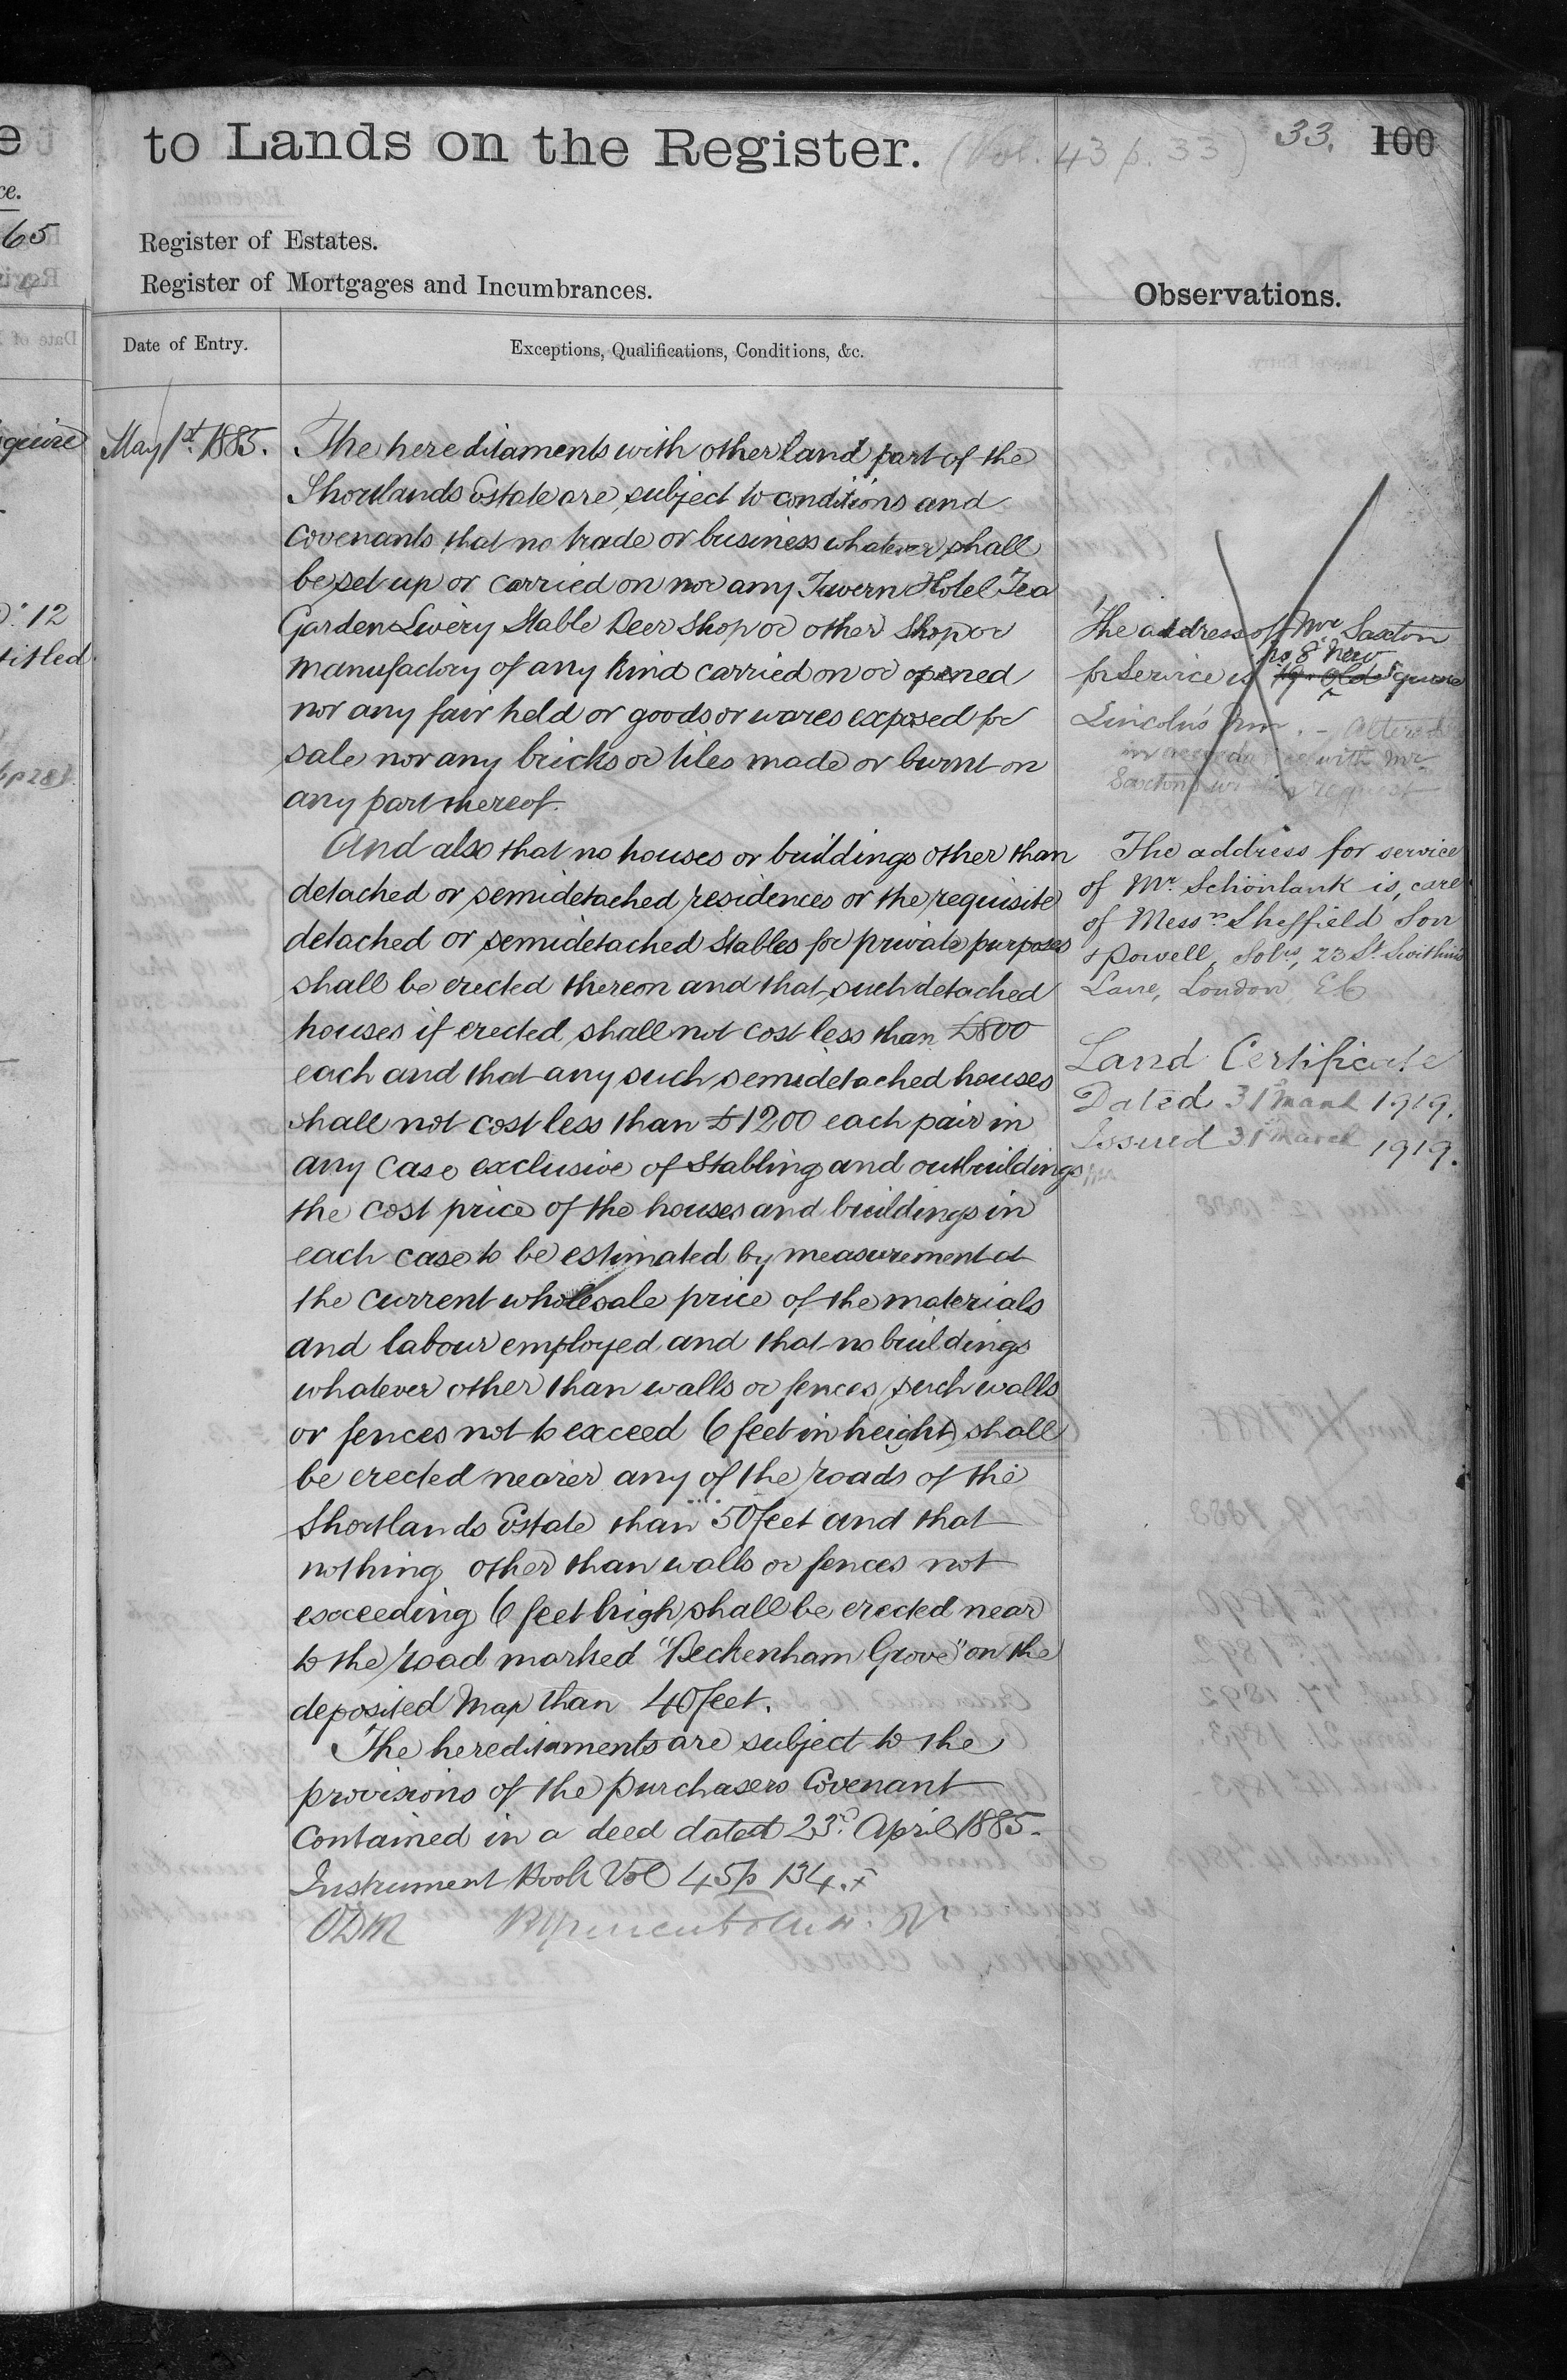 to Lands on the Register.
(Vol. 43 p. 33)
33.
100
Register of Estates.
Register of Mortgages and Incumbrances.
Observations.
Date of Entry.
Exceptions, Qualifications, Conditions, &c.
May 1st. 1885.
The hereditaments with other land part of the
Shortlands Estate are subject to conditions and
Covenants that no trade or business whatever shall
be set up or carried on nor any Tavern Hotel Tea
Garden Livery Stable Beer Shop or other Shop or
manufactory of any kind carried on or opened
nor any fair held or goods or wares exposed for
sale nor any bricks or tiles made or burnt on
any part thereof.
And also that no houses or buildings other than
detached or semidetached residences or the requisite
detached or semidetached Stables for private purposes
shall be erected thereon and that such detached
houses if erected shall not cost less than £800
each and that any such semidetached houses
shall not cost less than £1200 each pair in
any case exclusive of Stabling and outbuildings
the cost price of the houses and buildings in
each case to be estimated by measurement at
the current wholesale price of the materials
and labour employed and that no buildings
whatever other than walls or fences (such walls
or fences not to exceed 6 feet in height) shall
be erected nearer any of the roads of the
Shortlands Estate than 50 feet and that
nothing other than walls or fences not
exceeding 6 feet high shall be erected near
to the road marked "Beckenham Grove" on the
deposited Map than 40 feet.
The hereditaments are subject to the
provisions of the purchasers Covenant
Contained in a deed dated 23rd. April 1885.
Instrument Book Vol 45 p 134.
The address of Mr Saxton
no 8 New
for Service is 19 Old Square
Lincoln's Inn. - Altered
in accordance with Mr
Saxton's written request
The address for service
of Mr. Schönlank is, care
of Messrs Sheffield Son
& Powell, Solrs, 23 St. Swithin's
Lane, London, EC
Land Certificate
Dated 31st March 1919.
Issued 31st March 1919.
e
ce.
65
squire
12
titled
p 28